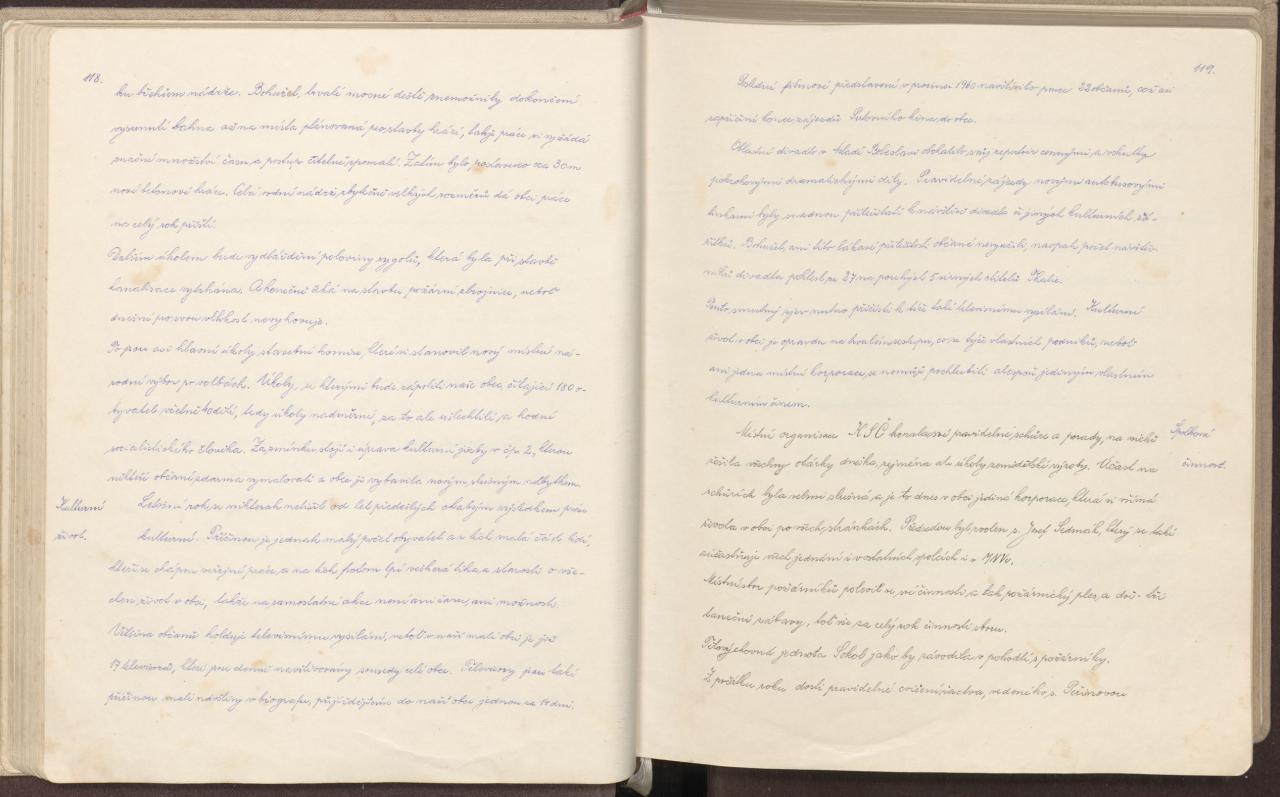 118.
ku břehům nádrže. Bohužel, trvalé mocné deště znemožnily dokončení
vysunutí bahna až na místa plánovaná pro stavby hrází, takže práce si vyžádá
značné množství času a postup čitelně zpomalí. Zatím bylo postaveno cca 30 m
nové betonové hráze. Celá vodní nádrž zbytečně velkých rozměrů dá obci práce
na celý rok příští.
Dalším úkolem bude vydláždění poloviny rygolů, která byla při stavbě
kanalisace vytrhána. A konečně čeká na stavbu požární zbrojnice, neboť
dnešní pro svou vlhkost nevyhovuje.
To jsou asi hlavní úkoly stavební komise, které si stanovil nový místní ná-
rodní výbor po volbách. Úkoly, se kterými bude zápoliti naše obec, čítající 180 o-
byvatel včetně dětí, tedy úkoly nadměrné, za to ale ušlechtilé a hodné
socialistického člověka. Za zmínku stojí i úprava kulturní jizby v čp. 2, kterou
někteří občané zdarma vymalovali a obec ji vybavila novým slušným nábytkem.
Kulturní
život.
Letošní rok se nikterak nelišil od let předešlých chabým výsledkem práce
kulturní. Příčinou je jednak malý počet obyvatel a z nich malá část lidí,
kteří se chápou veřejné práce, a na těch potom lpí veškerá tíha a starosti o vše-
chen život v obci, takže na samostatné akce není ani času, ani možnosti.
Většina občanů holduje televisnímu vysílání, neboť v naší malé obci je již
17 televisorů, které jsou denně navštěvovány sousedy celé obce. Televisory jsou také
příčinou malé návštěvy v biografu, přijíždějícím do naší obce jednou za 14 dní.
119.
Poslední filmové představení v prosinci 1960 navštívilo pouze 22 občanů, což asi
zapříčiní konec zájezdů Putovního kina do obce.
Oblastní divadlo v Mladé Boleslavi obohatilo svůj repertoir cennými a vskutku
pokrokovými dramatickými díly. Pravidelné zájezdy novými autobusovými
linkami byly snadnou příležitostí k návštěvě divadla či jiných kulturních zá-
žitků. Bohužel, ani této lákavé příležitosti občané nevyužili, naopak, počet návštěv-
níků divadla poklesl ze 27 na pouhých 5 věrných ctitelů Thalie.
Tento smutný zjev nutno přičísti k tíži také televisnímu vysílání. Kulturní
život v obci je opravdu na trvalém sestupu, co se týče vlastních podniků, neboť
ani jedna místní korporace se nemůže pochlubiti alespoň jediným vlastním
kulturním činem.
Spolková
činnost.
Místní organisace KSČ konala své pravidelné schůze a porady, na nichž
řešila všechny otázky dneška, zejména ale úkoly zemědělské výroby. Účast na
schůzích byla velmi slušná a je to dnes v obci jediná korporace, která si všímá
života v obci po všech stránkách. Předsedou byl zvolen s. Josef Sedmák, který se také
zúčastňuje všech jednání i v ostatních spolcích i v MNV.
Místní sbor požárníků polevil ve své činnosti a tak požárnický ples, a dvě - tři
taneční zábavy, toť vše za celý rok činnosti sboru.
Tělovýchovná jednota Sokol jako by závodila v pohodlí s požárníky.
Z počátku roku dosti pravidelné cvičení žactva, vedeného s.